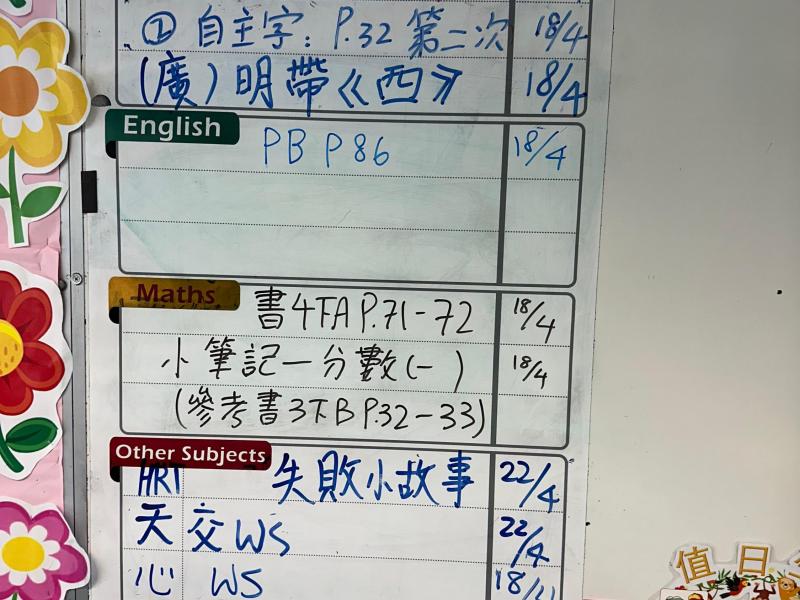 ② 自主字: P.32 第二次 18/4
(廣) 明帶《西》 18/4
English
PB P 86 18/4
Maths
書4下A P.71-72 18/4
小筆記一分數(一) 18/4
(參考書3下B P.32-33)
Other Subjects
HRT 失敗小故事 22/4
天 交 WS 22/4
心 WS
值日